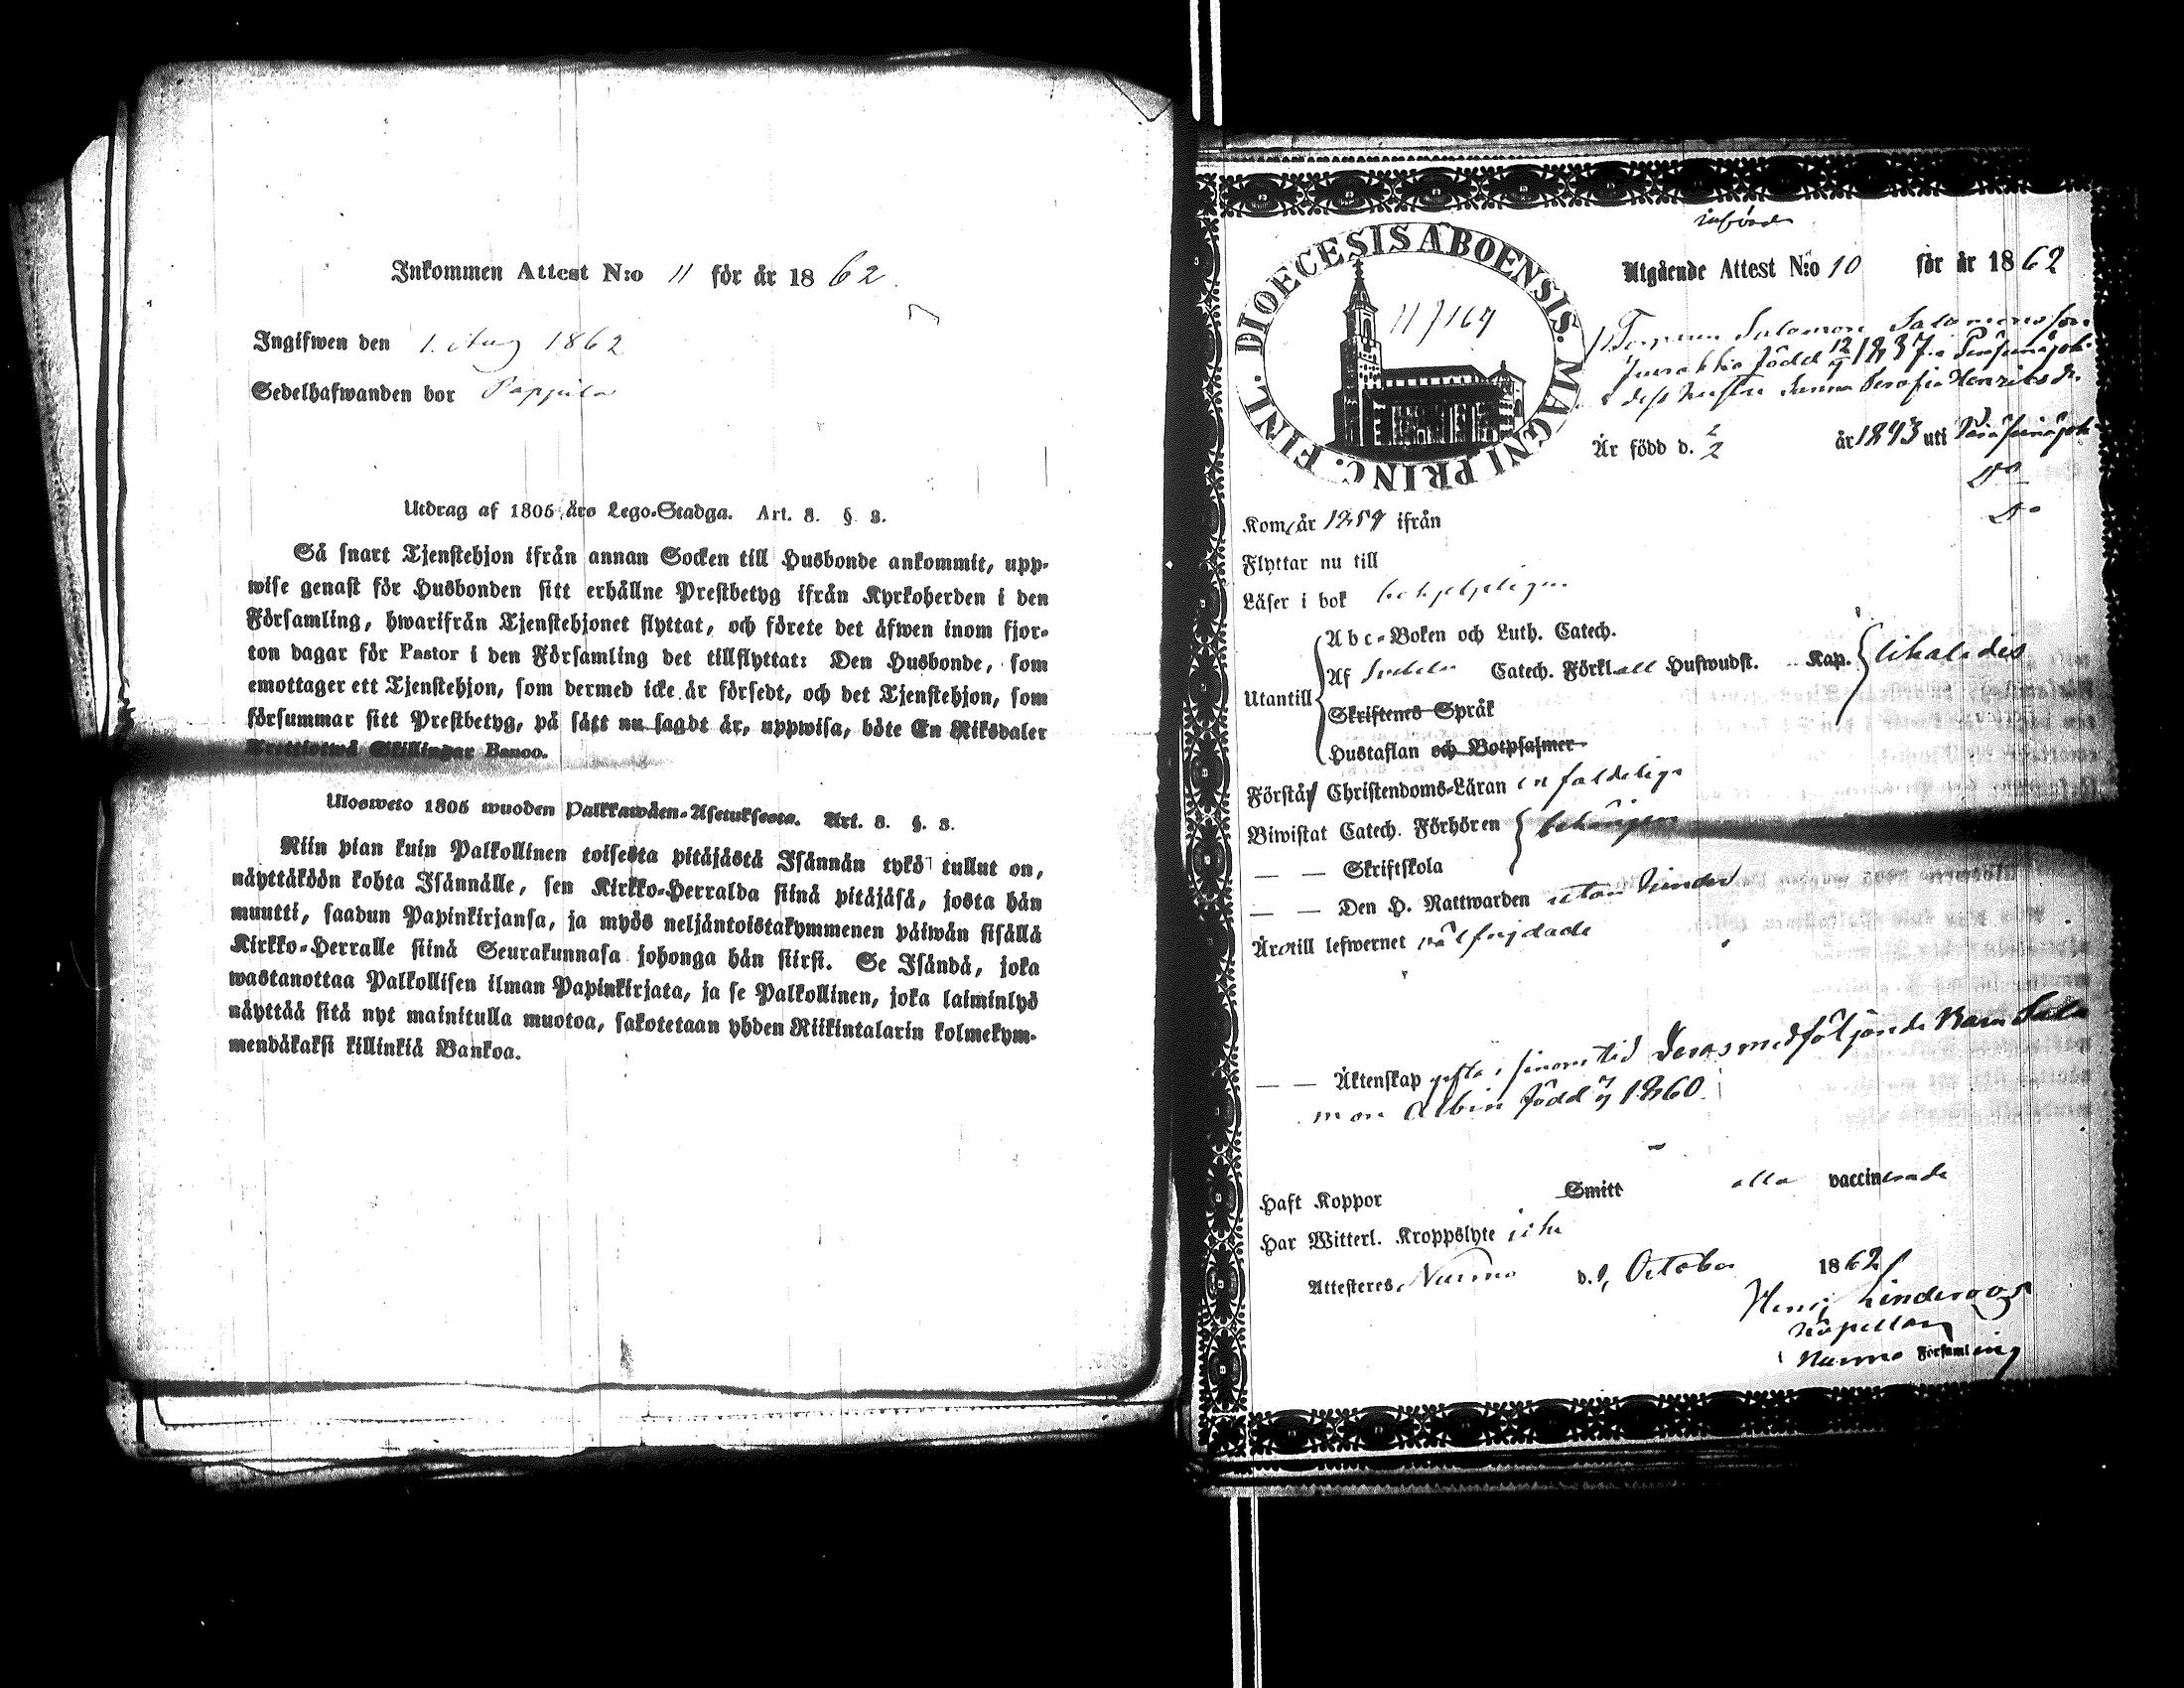 Inkommen Attest N:o 11 för år 1862.
Ingifwen den 1. Aug 1862
Sedelhafwanden bor Pappila
Utdrag af 1805 års Lego-Stadga. Art. 3. §. 3.
Så snart Tjenstehjon ifrån annan Socken till Husbonde ankommit, upp-
wise genast för Husbonden sitt erhållne Prestbetyg ifrån Kyrkoherden i den
Församling, hwarifrån Tjenstehjonet flyttat, och förete det äfwen inom fjor-
ton dagar för Pastor i den Församling det tillflyttat: Den Husbonde, som
emottager ett Tjenstehjon, som dermed icke är försedt, och det Tjenstehjon, som
försummar sitt Prestbetyg, på sätt nu sagdt är, uppwisa, böte En Riksdaler
Trettiotwå Skillingar Banco.
Ulosweto 1805 wuoden Palkkawäen-Asetuksesta. Art. 3. §. 3.
Niin pian kuin Palkollinen toisesta pitäjästä Isännän tykö tullut on,
näyttäköön kohta Isännälle, sen Kirkko-Herralda siinä pitäjäsä, josta hän
muutti, saadun Papinkirjansa, ja myös neljäntoistakymmenen päiwän sisällä
Kirkko-Herralle siinä Seurakunnasa johonga hän siirsi. Se Isändä, joka
wastanottaa Palkollisen ilman Papinkirjata, ja se Palkollinen, joka laiminlyö
näyttää sitä nyt mainitulla muotoa, sakotetaan yhden Riikintalarin kolmekym-
mendäkaksi killinkiä Bankoa.
införd
DIOECESIS ABOENSIS. MAGNI PRINC. FINL.
11/164
Utgående Attest N:o 10 för år 1862
Salomon Salomonsson
född 12/9 1837 fr. Peräseinäjok.
dess hustru Sanna Serafia Henriksdr.
Är född d. 2/2 år 1843 uti Peräseinäjok
Do
Kom år 1859 ifrån Do
Flyttar nu till
Läser i bok behjelpligen
Utantill
Abc-Boken och Luth. Catech.
Af Svebelii Catech. Förkl. all Hufwudst. Kap. likaledes
Skriftenes Språk
Hustaflan och Botpsalmer
Förstår Christendoms-Läran enfaldeligt
Biwistat Catech. Förhören behörigen
— — Skriftskola
— — Den H. Nattwarden utan hinder
Äro till lefwernet välfrejdade
— — Äktenskap gifta i sinom tid Deras medföljande Barn Salo
mon Albin född 7/9 1860.
Haft Koppor Smitt alla vaccinerade
Har Witterl. Kroppslyte icke
Attesteres, Nurmo d. 1, October 1862
Henr. Linderoos
Kapellan
i Nurmo Församling